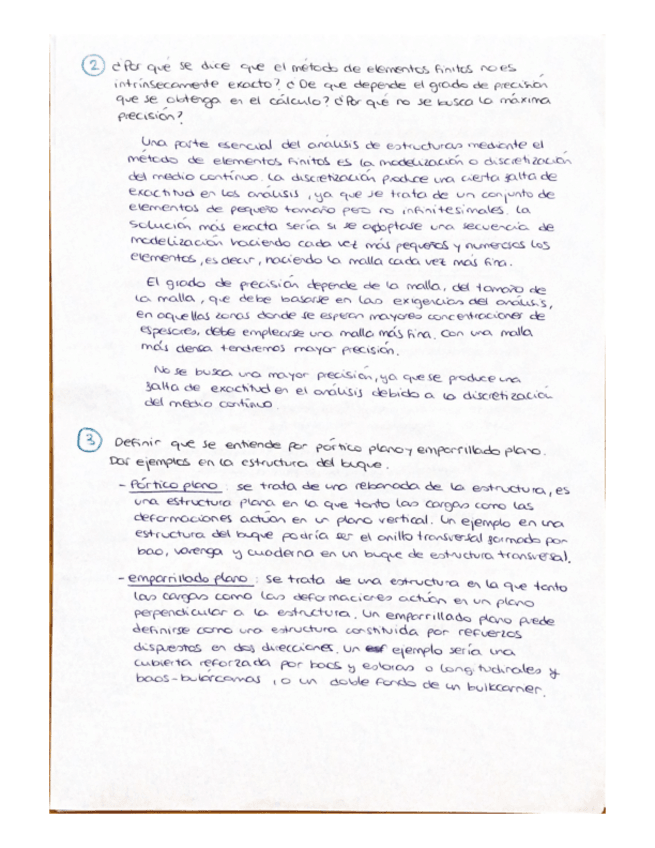 2 ¿Por qué se dice que el método de elementos finitos no es
intrínsecamente exacto? ¿De que depende el grado de precisión
que se obtenga en el cálculo? ¿Por qué no se busca la máxima
precisión?
Una parte esencial del análisis de estructuras mediante el
método de elementos finitos es la modelización o discretización
del medio continuo. La discretización produce una cierta falta de
exactitud en los análisis, ya que se trata de un conjunto de
elementos de pequeño tamaño pero no infinitesimales. La
solución más exacta sería si se adoptase una secuencia de
modelización haciendo cada vez más pequeños y numerosos los
elementos, es decir, haciendo la malla cada vez más fina.
El grado de precisión depende de la malla, del tamaño de
la malla, que debe basarse en las exigencias del análisis,
en aquellas zonas donde se esperan mayores concentraciones de
espesores, debe emplearse una malla más fina. Con una malla
más densa tendremos mayor precisión.
No se busca una mayor precisión, ya que se produce una
falta de exactitud en el análisis debido a la discretización
del medio continuo.
3 Definir que se entiende por pórtico plano y emparrillado plano.
Dar ejemplos en la estructura del buque.
- Pórtico plano: se trata de una rebanada de la estructura, es
una estructura plana en la que tanto las cargas como las
deformaciones actúan en un plano vertical. Un ejemplo en una
estructura del buque podría ser el anillo transversal formado por
bao, varenga y cuaderna en un buque de estructura transversal.
- emparrillado plano: se trata de una estructura en la que tanto
las cargas como las deformaciones actúan en un plano
perpendicular a la estructura. Un emparrillado plano puede
definirse como una estructura constituida por refuerzos
dispuestos en dos direcciones. Un ejemplo sería una
cubierta reforzada por baos y esloras o longitudinales y
baos-bulárcamas, o un doble fondo de un bulkcarrier.